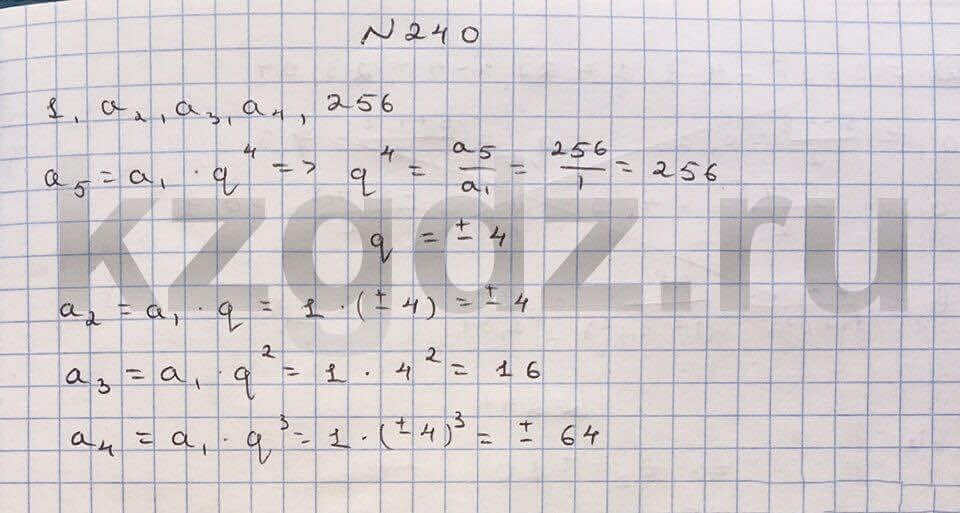 N 240
1, a₂, a₃, a₄, 256
a₅ = a₁ · q⁴ => q⁴ = a₅/a₁ = 256/1 = 256
q = ± 4
a₂ = a₁ · q = 1 · (± 4) = ± 4
a₃ = a₁ · q² = 1 · 4² = 16
a₄ = a₁ · q³ = 1 · (± 4)³ = ± 64
kzgdz.ru